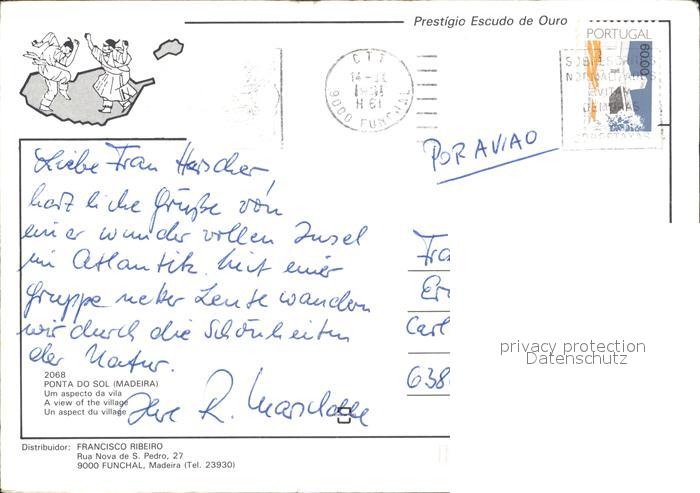 Prestígio Escudo de Ouro
PORTUGAL
60.00
CTT
1991
9000 FUNCHAL
POR AVIAO
Liebe Frau
herzliche Grüße von
einer wundervollen Insel
im Atlantik. Mit einer
Gruppe netter Leute wandern
wir durch die Schönheiten
der Natur.
Ihre R.
Fra
Carl
638
privacy protection
Datenschutz
2068
PONTA DO SOL (MADEIRA)
Um aspecto da vila
A view of the village
Un aspect du village
Distribuidor: FRANCISCO RIBEIRO
Rua Nova de S. Pedro, 27
9000 FUNCHAL, Madeira (Tel. 23930)